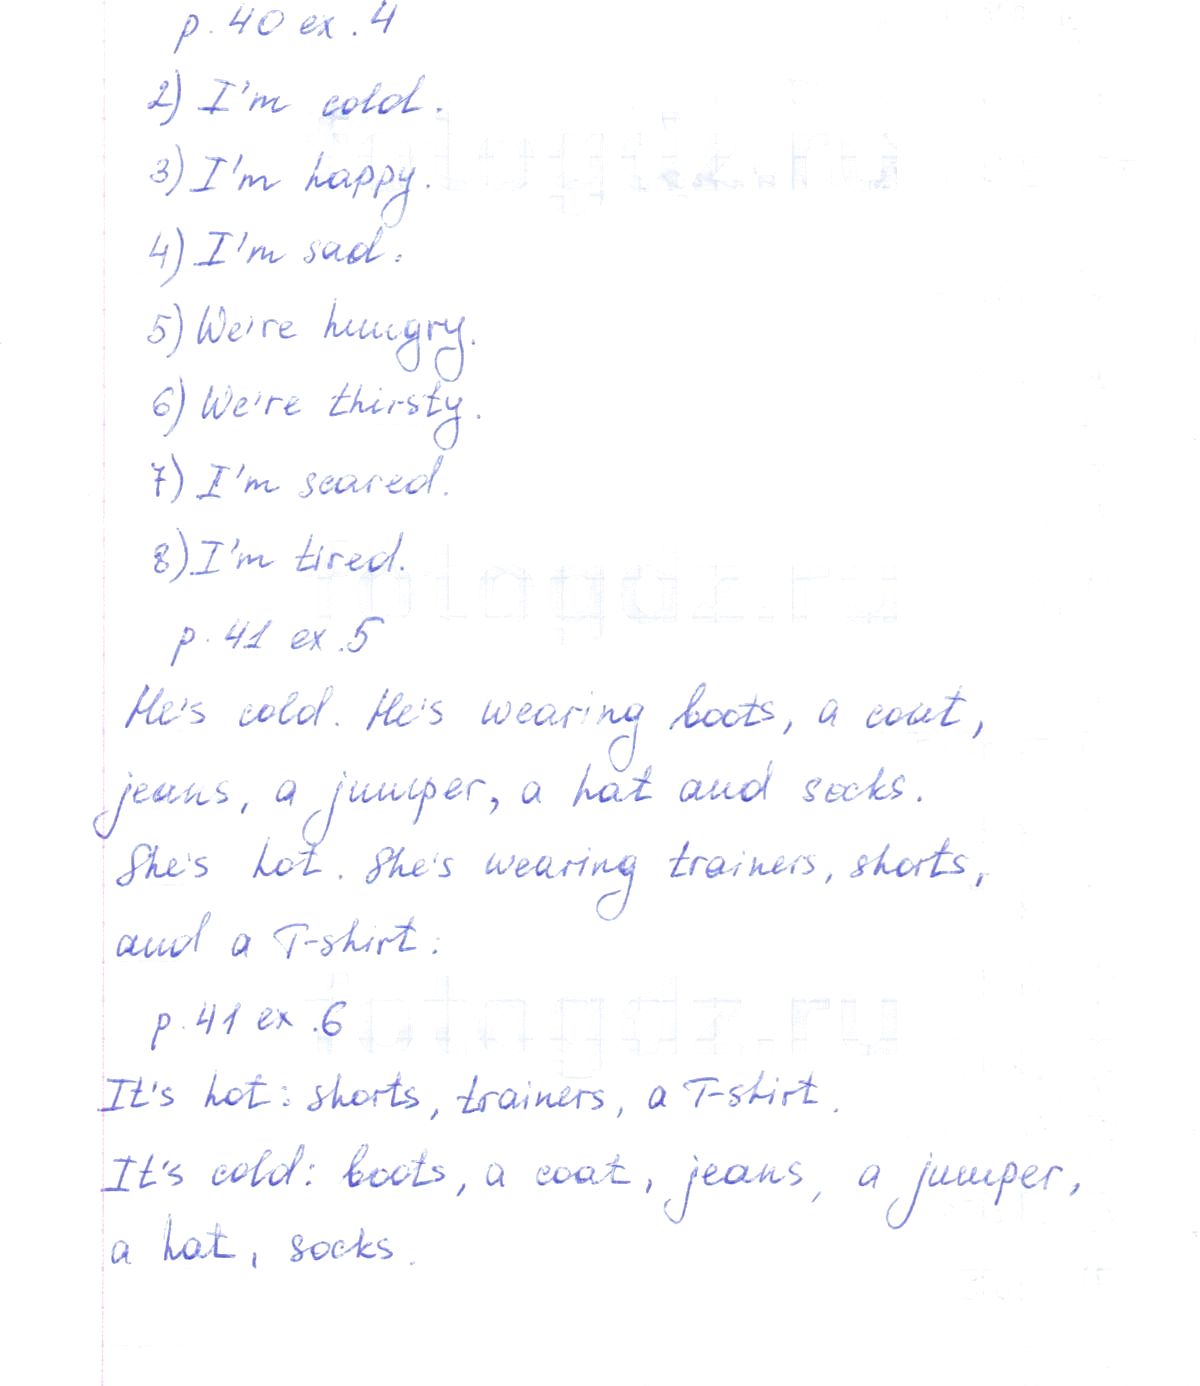 p. 40 ex. 4
2) I'm cold.
3) I'm happy.
4) I'm sad.
5) We're hungry.
6) We're thirsty.
7) I'm scared.
8) I'm tired.
p. 41 ex. 5
He's cold. He's wearing boots, a coat,
jeans, a jumper, a hat and socks.
She's hot. She's wearing trainers, shorts,
and a T-shirt.
p. 41 ex. 6
It's hot: shorts, trainers, a T-shirt.
It's cold: boots, a coat, jeans, a jumper,
a hat, socks.